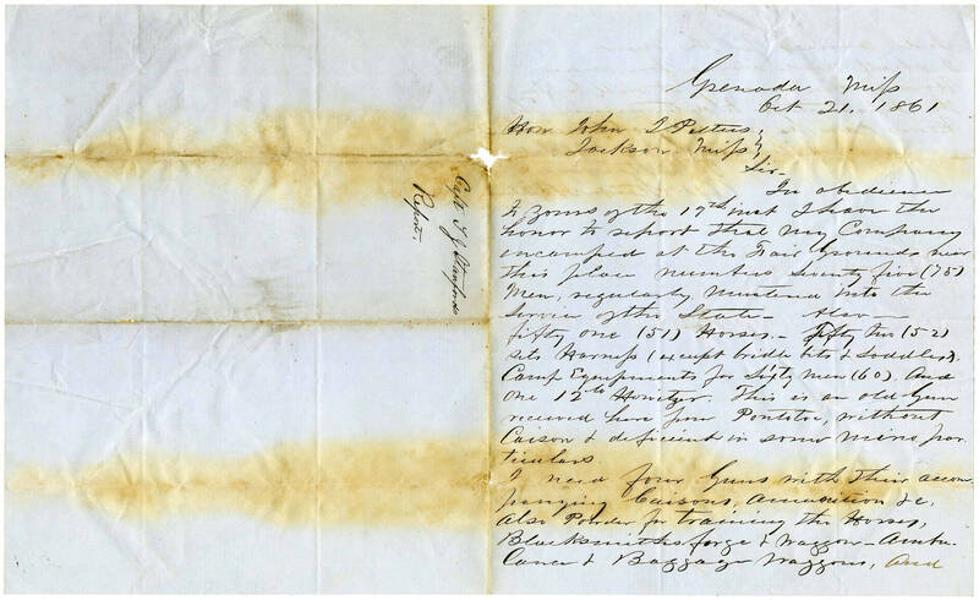 Capt T J Stanfords
Report.
Grenada Miss
Oct 21, 1861
Hon John J Pettus,
Jackson Miss,
Sir—
In obedience
to yours of the 17th inst I have the
honor to report that my Company
encamped at the Fair Grounds near
this place numbers Seventy five (75)
Men, regularly Mustered into the
Service of the State— Also—
fifty one (51) Horses.— Fifty two (52)
sets Harness (except bridle bits & Saddles).
Camp Equipments for Sixty men (60). And
One 12 lb Howitzer. This is an old Gun
received here from Pontotoc, without
Caison & deficient in some mino par
ticulars
I need four Guns with their accom
panying Caisons, Ammunition &c.
Also Powder for training the Horses,
Blacksmiths forge & Waggon— Ambu-
lance & Baggage Waggons, And